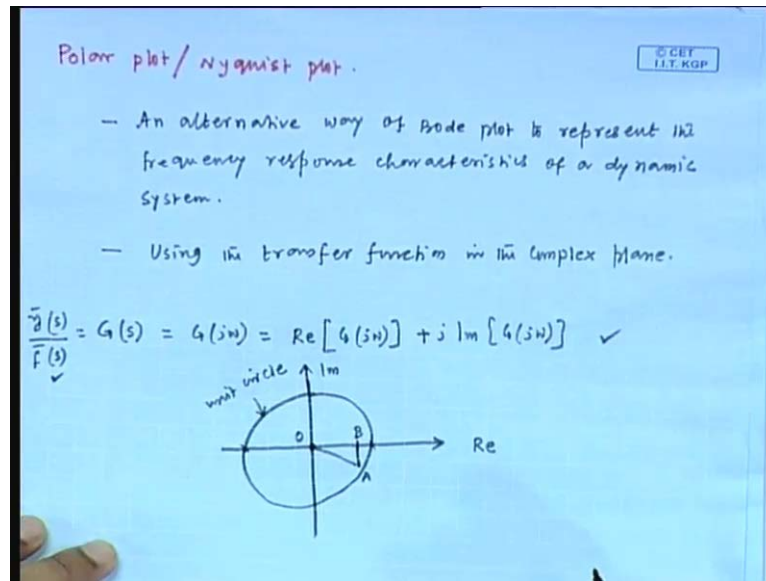 Polar plot / Nyquist plot.
© CET
I.I.T. KGP
— An alternative way of Bode plot to represent the
frequency response characteristics of a dynamic
system.
— Using the transfer function in the complex plane.
ȳ(s) / f̄(s) = G(s) = G(jω) = Re [G(jω)] + j Im [G(jω)] ✓
✓
unit circle
Im
O B Re
A